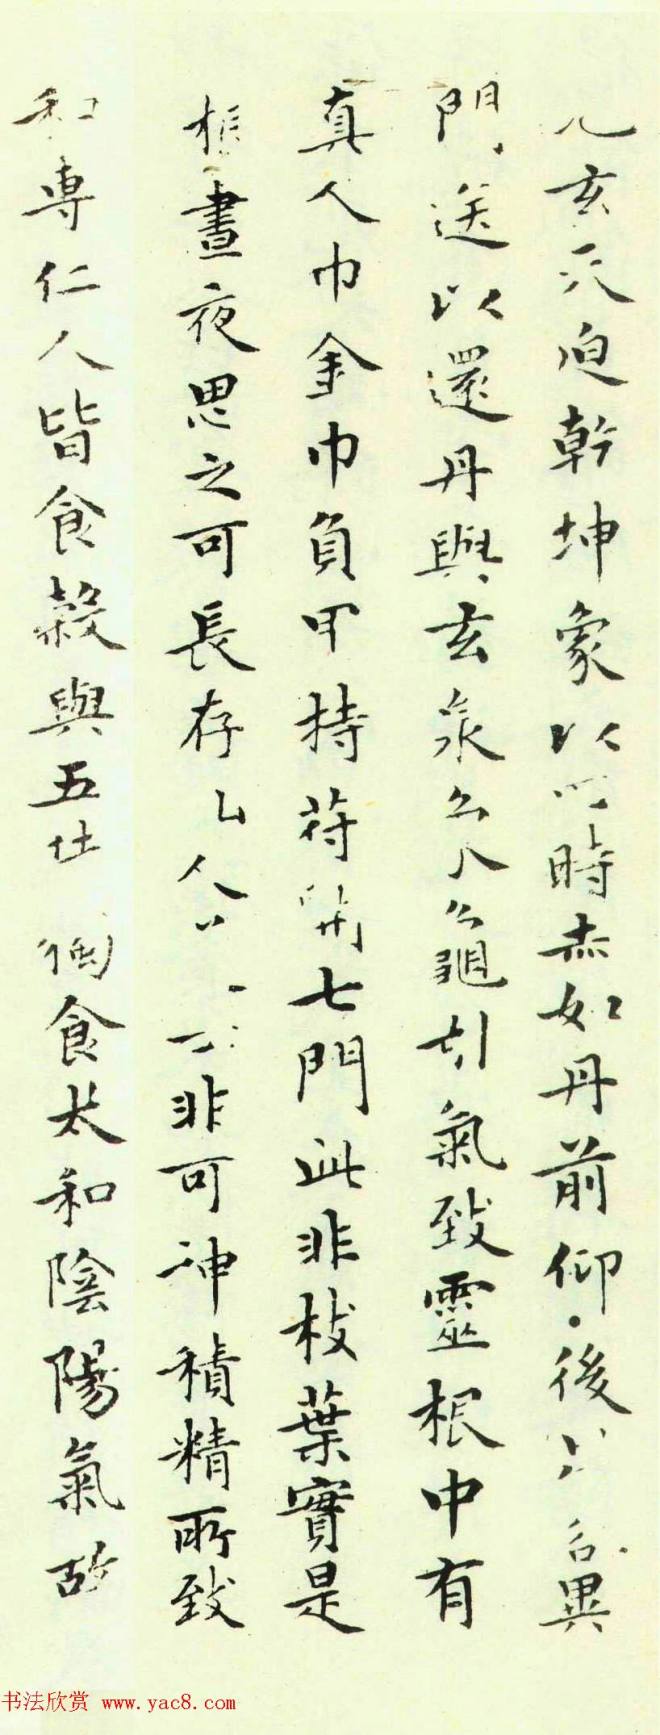 玄 迫乾坤象以 時 如丹前仰後 異
門送以還丹與玄泉 龜引氣致靈根中有
真人巾金巾負甲持苻開七門此非枝葉實是
根晝夜思之可長存 非可神積精所致
和專仁人皆食穀與五 獨食太和陰陽氣故
书法欣赏 www.yac8.com